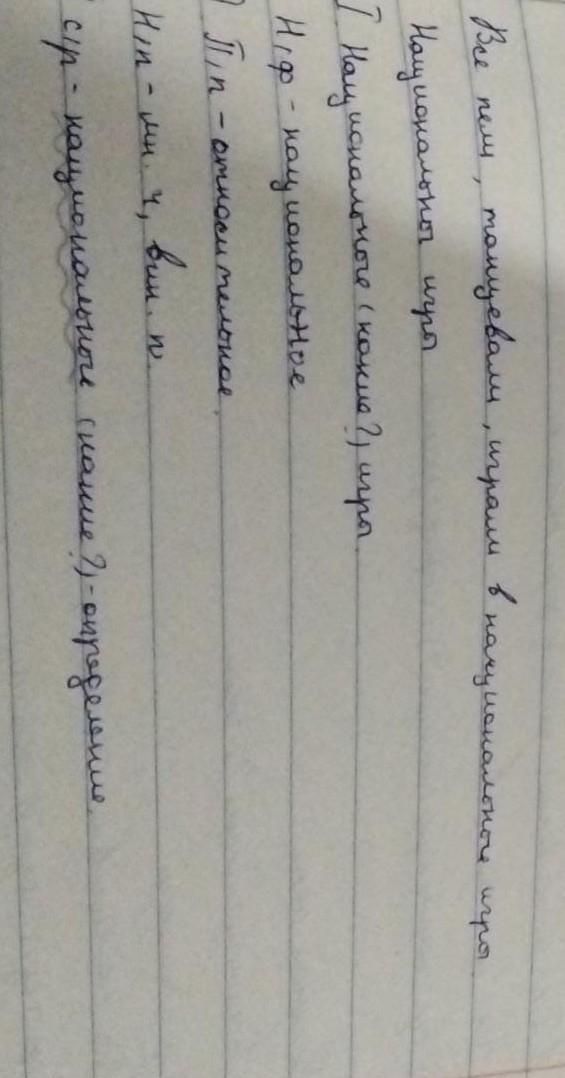 Все пели, танцевали, играли в национальные игры
Национальные игры
I Национальные (какие?) игры.
Н/ф - национальное
П/п - относительное.
Н/п - мн. ч, вин. п.
с/р - национальные (какие?) - определение.